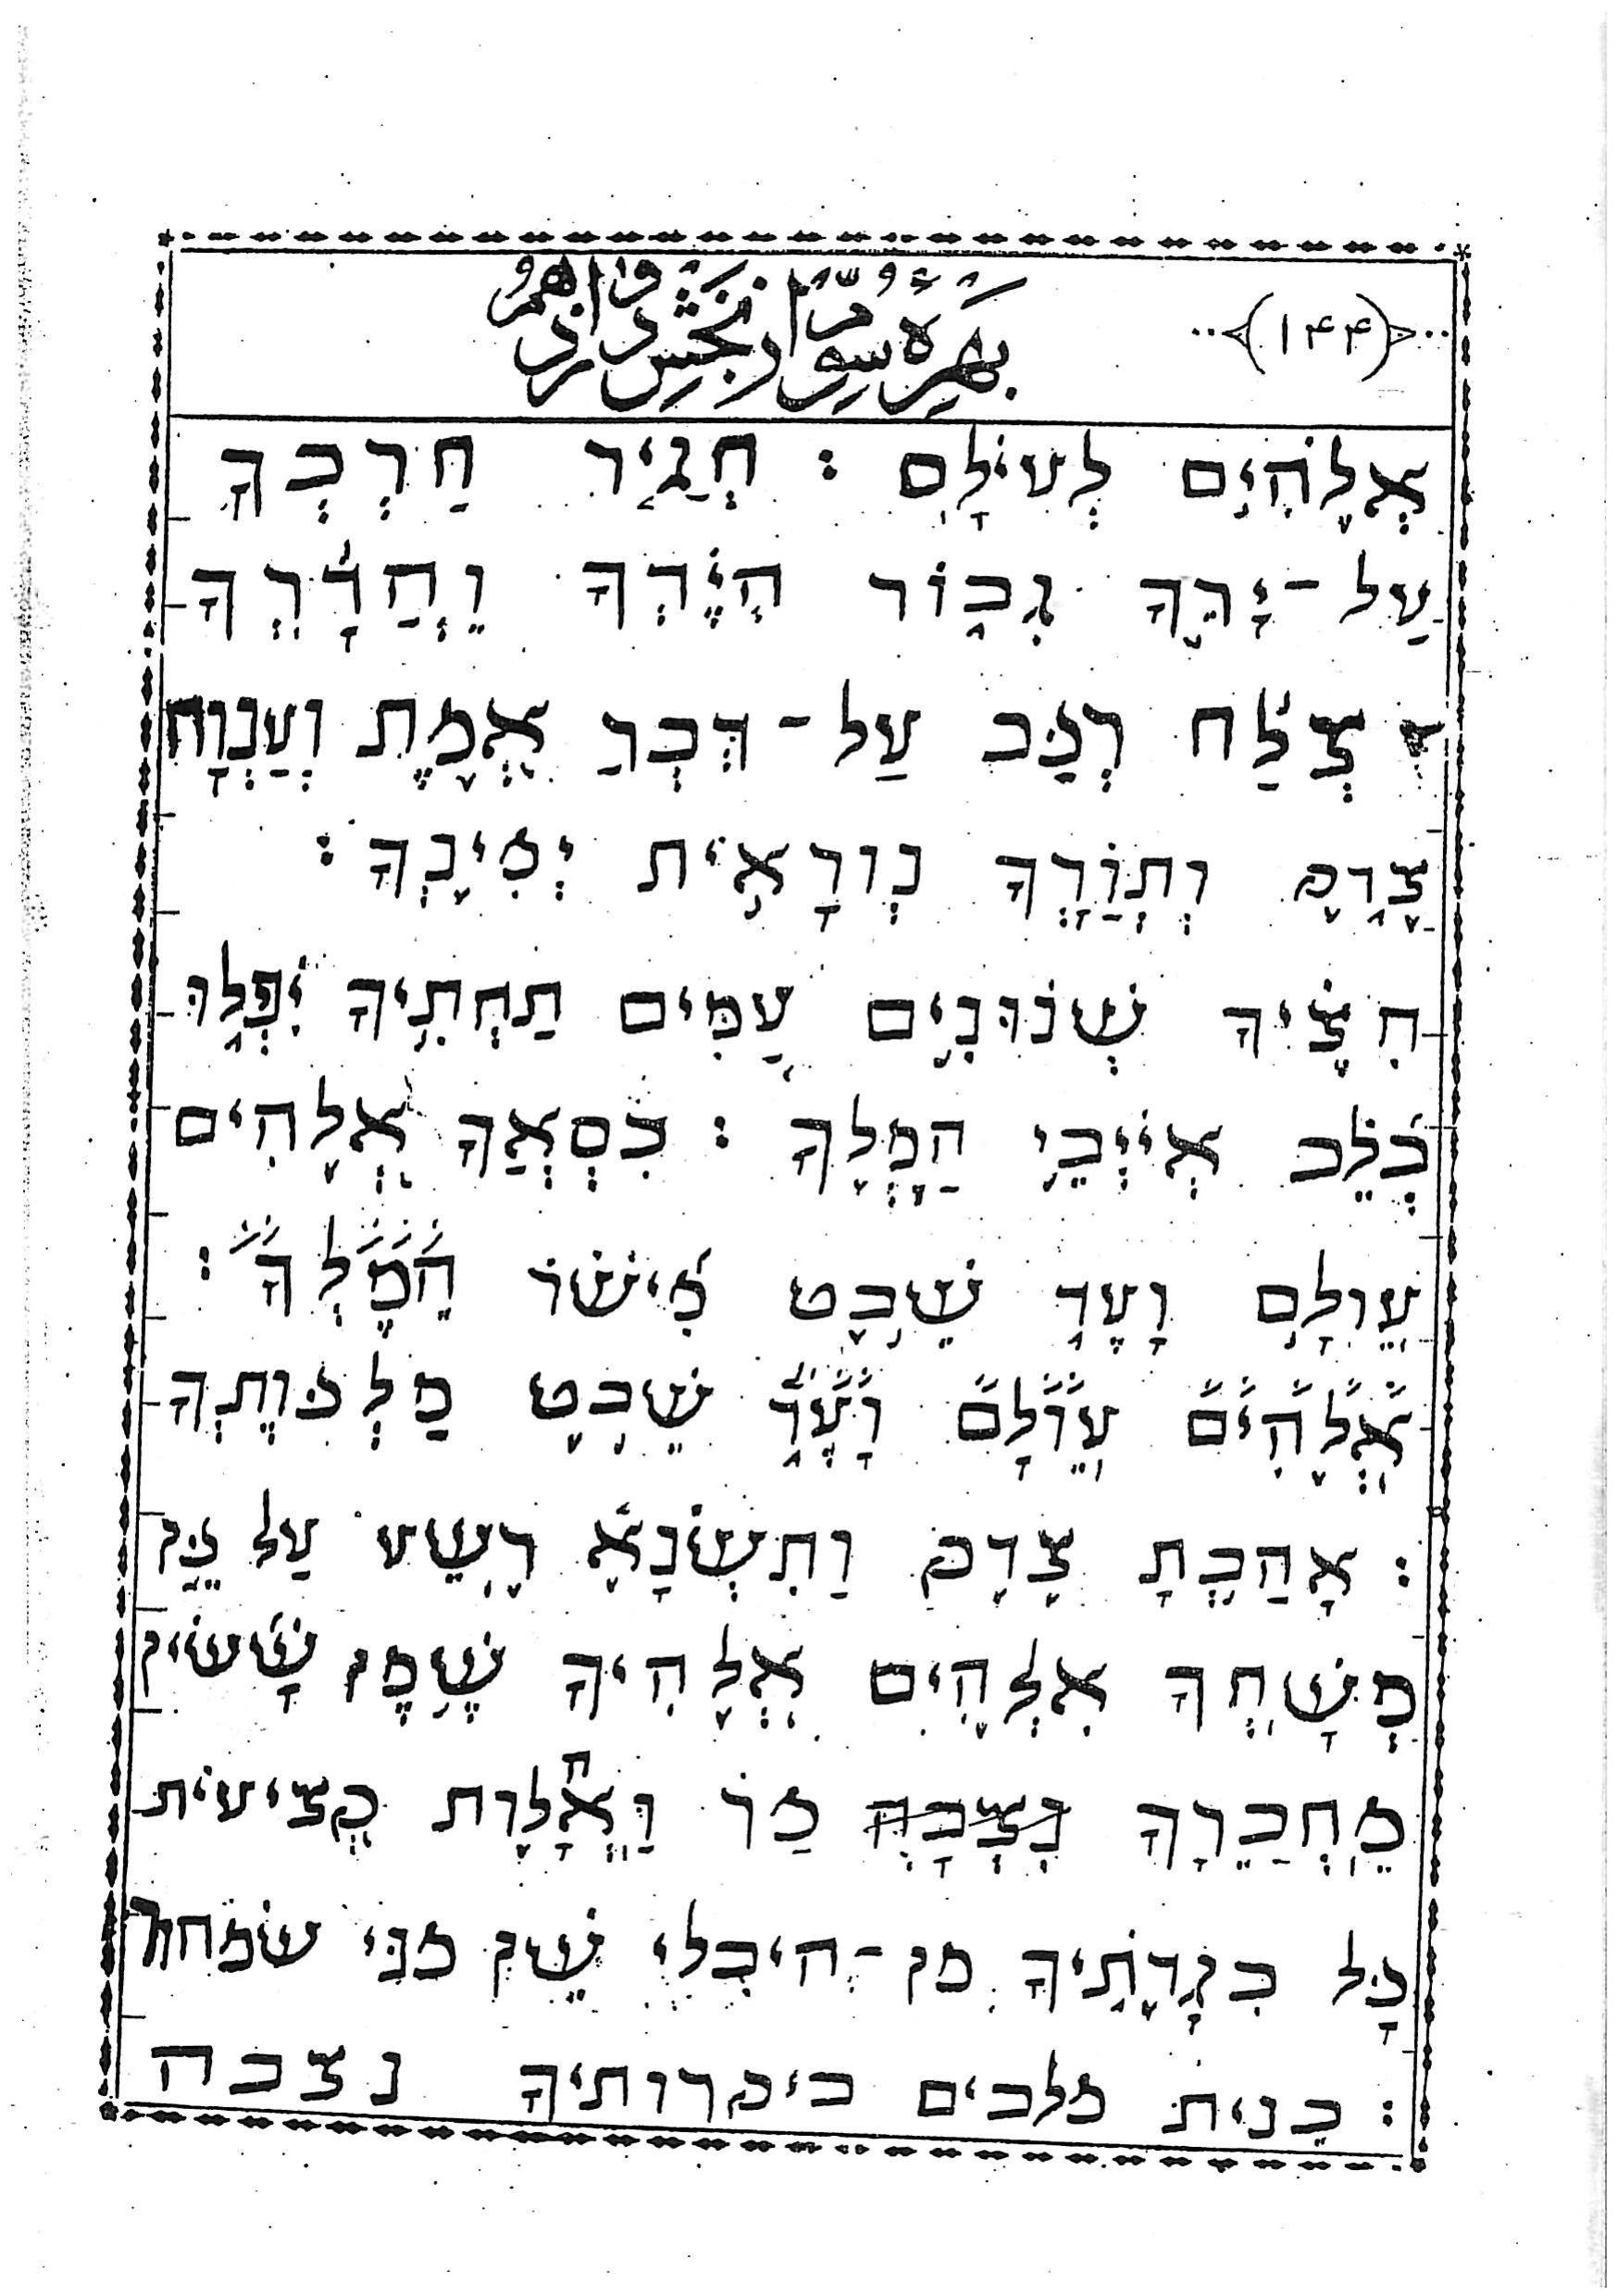 (۱۴۴)
بهرهٔ سوم از بخش دوازدهم
אֱלֹהִים לְעוֹלָם : חֲגוֹר חַרְבְּךָ
עַל-יָרֵךְ גִבּוֹר הוֹדְךָ וַהֲדָרְךָ
צְלַח רְכַב עַל-דְּבַר אֱמֶת וְעַנְוָה
צֶדֶק וְתוֹרְךָ נוֹרָאוֹת יְמִינֶךָ :
חִצֶּיךָ שְׁנוּנִים עַמִּים תַּחְתֶּיךָ יִפְּלוּ
בְּלֵב אוֹיְבֵי הַמֶּלֶךְ : כִּסְאֲךָ אֱלֹהִים
עוֹלָם וָעֶד שֵׁבֶט מִישׁוֹר הַמֶּלֶךְ :
אֱלֹהִים עוֹלָם וָעֶד שֵׁבֶט מַלְכוּתֶךָ
: אָהַבְתָּ צֶדֶק וַתִּשְׂנָא רֶשַׁע עַל כֵּן
מְשָׁחֲךָ אֱלֹהִים אֱלֹהֶיךָ שֶׁמֶן שָׂשׂוֹן
מֵחֲבֵרֶךָ נִצְּבָה מֹר וַאֲחָלוֹת קְצִיעוֹת
כָּל בִּגְדֹתֶיךָ מן-היכלי שֵׁן מני שמחוך
: בנות מלכים ביקרותיך נצבה